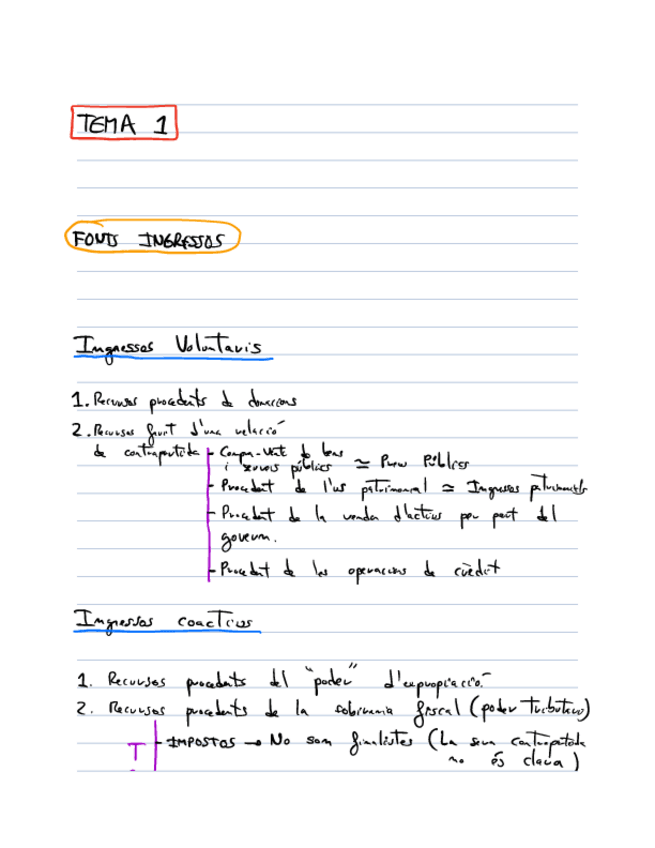 TEMA 1
FONTS INGRESSOS
Ingressos Voluntaris
1. Recursos procedents de donacions
2. Recursos fruit d'una relació
de contrapartida - Compra-Venta de bens
i serveis públics ≃ Preus Públics
- Procedent de l'us patrimonial ≃ Ingressos patrimonials
- Procedent de la venda d'actius per part del
govern.
- Procedent de les operacions de crèdit
Ingressos coactius
1. Recursos procedents del "poder" d'expropiació.
2. Recursos procedents de la sobirania fiscal (poder tributari)
T - IMPOSTOS → No son finalistes (La seva contrapartida
no és clara)